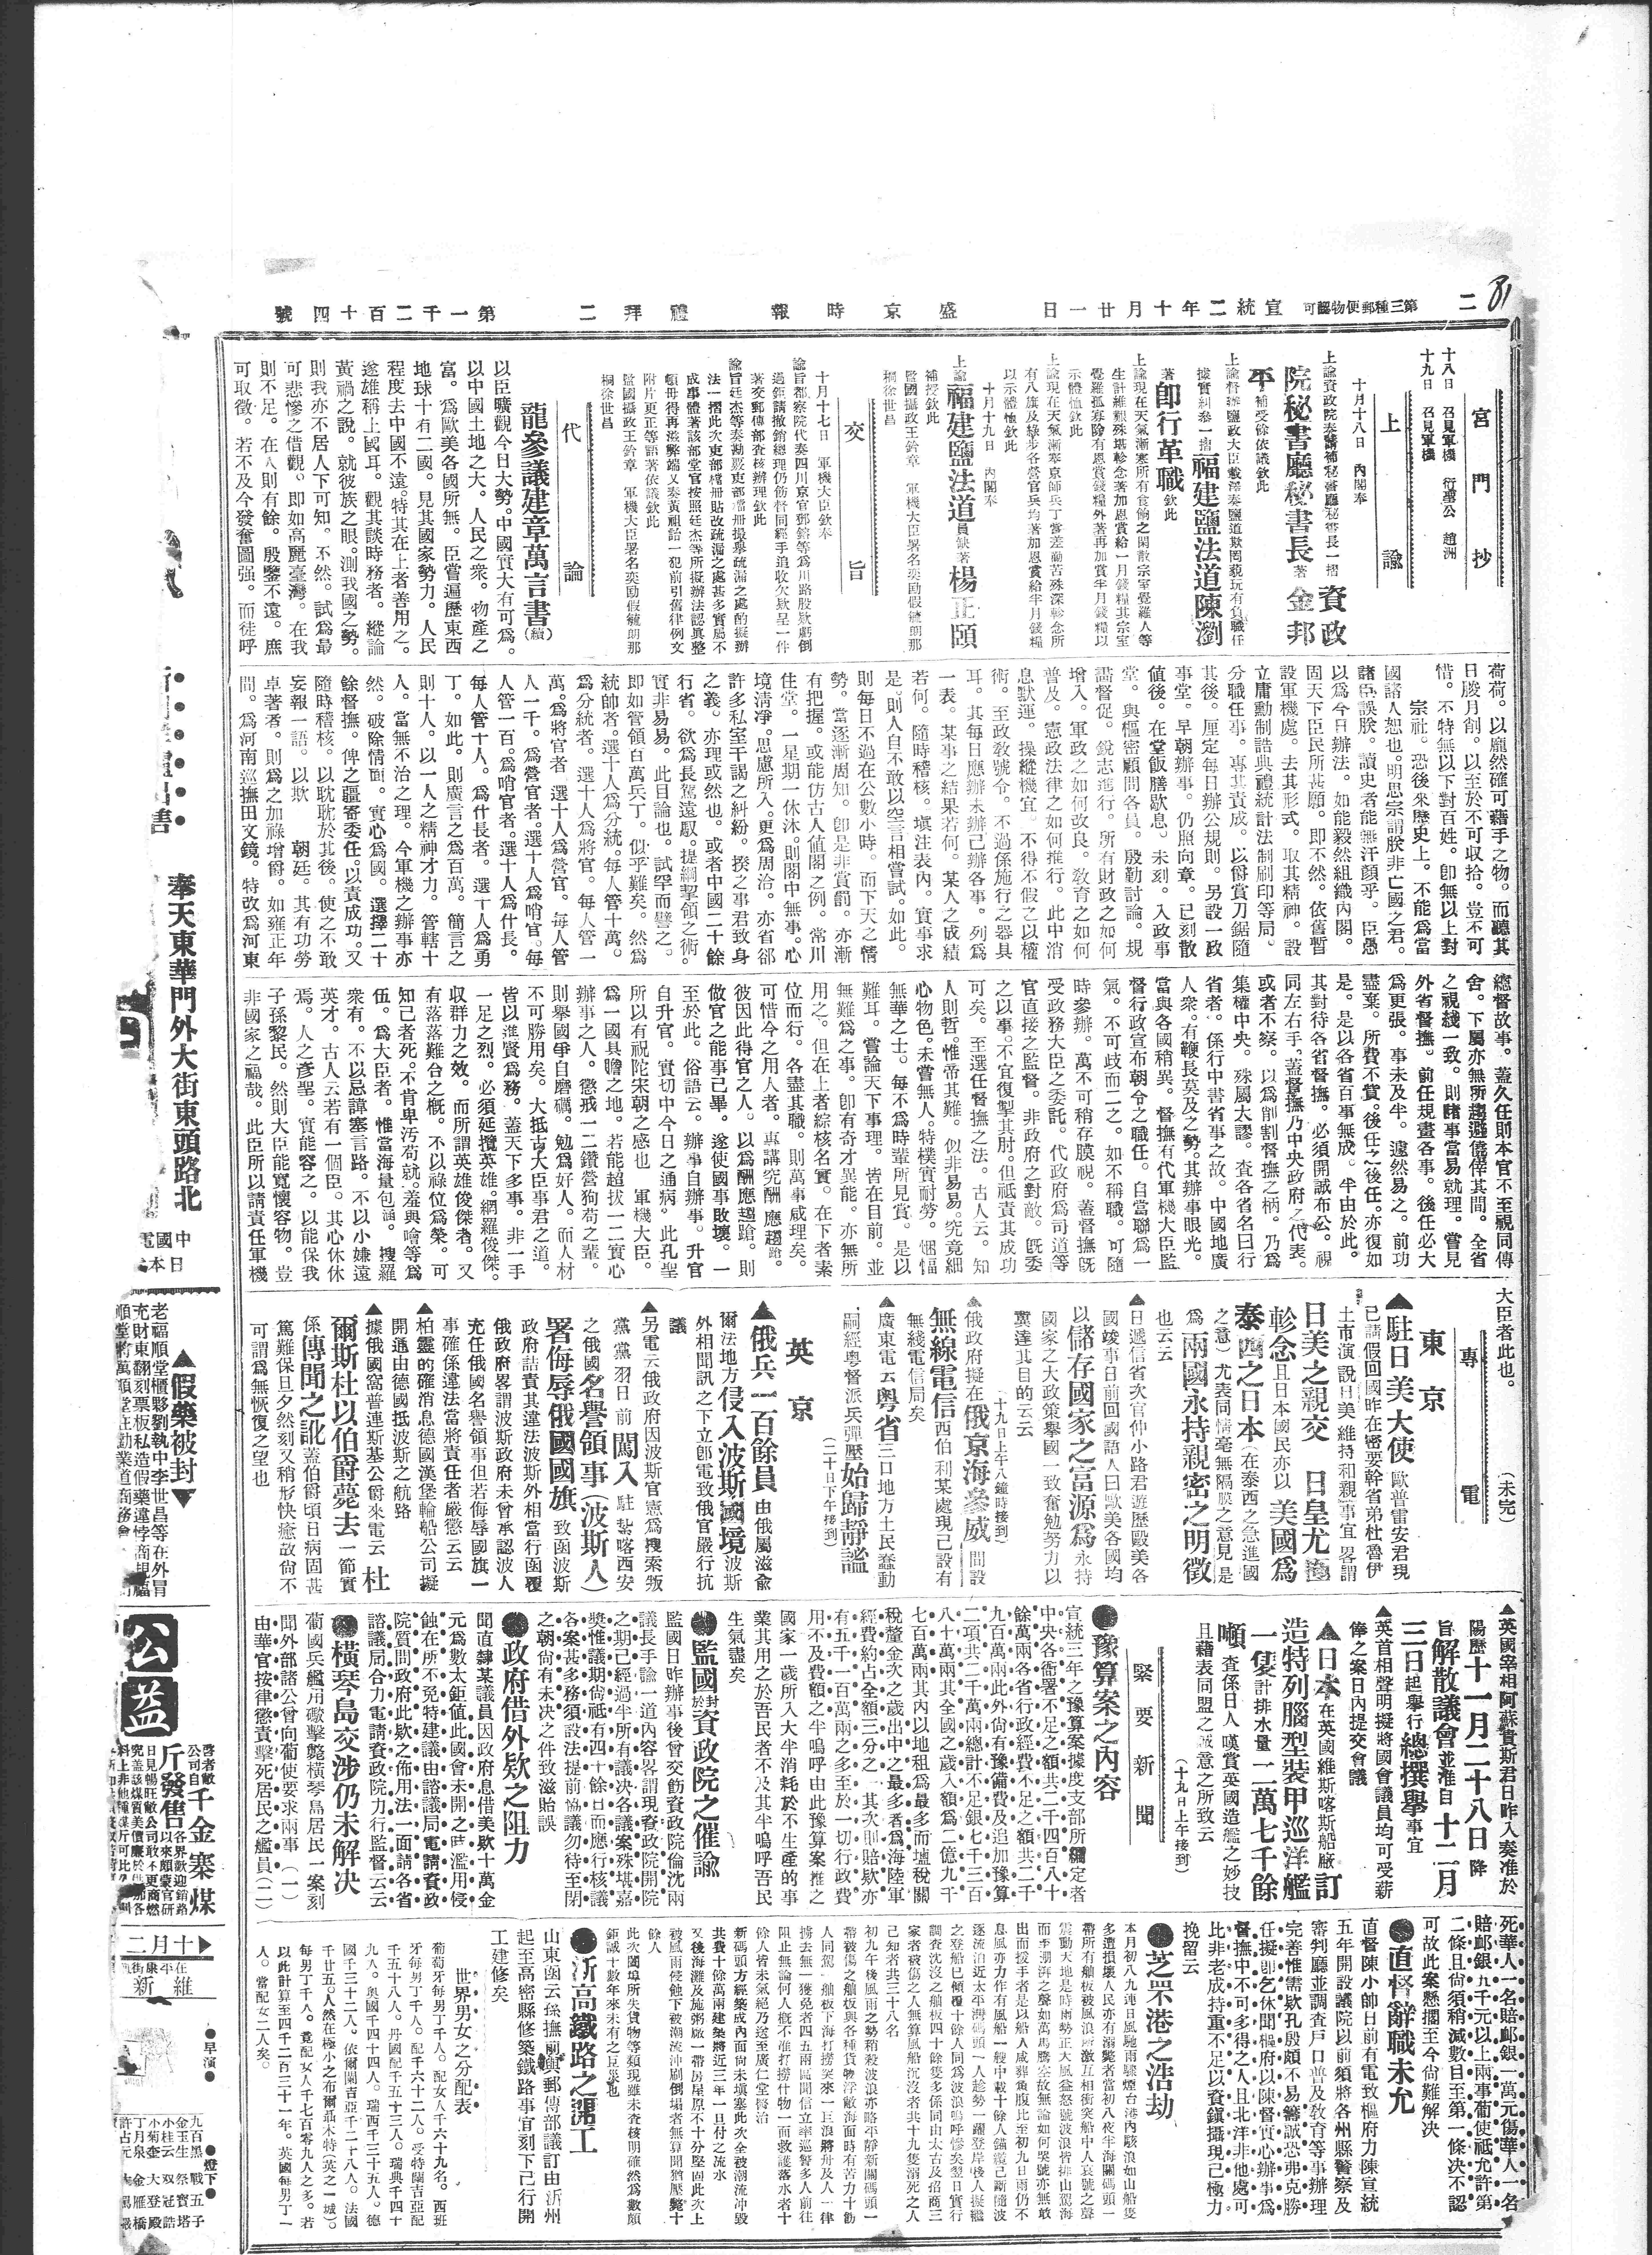 二
可認物便郵種三第
日一廿月十年二統宣
報時京盛
二拜禮
號四十百二千一第
宮門抄
十八日 召見軍機 衍聖公 趙洲
十九日 召見軍機
上諭
十月十八日 內閣奉
上諭資政院奏請補秘書廳秘書長一摺資政
院秘書廳秘書長著金邦
平補受餘依議欽此
上諭督辦鹽政大臣載澤奏鹽道欺罔藐玩有負職任
據實糾參一摺福建鹽法道陳瀏
著卽行革職欽此
上諭現在天氣漸寒所有食餉之閑散宗室覺羅人等
生計維艱殊堪軫念著加恩賞給一月錢糧其宗室
覺羅孤寡除有恩賞錢糧外著再加賞半月錢糧以
示體恤欽此
上諭現在天氣漸寒京師兵丁當差勤苦殊深軫念所
有八旗及綠步各營官兵均著加恩賞給半月錢糧
以示體恤欽此
十月十九日 內閣奉
上諭福建鹽法道員缺著楊正頤
補授欽此
監國攝政王鈐章 軍機大臣署名奕劻假毓朗那
桐徐世昌
交旨
十月十七日 軍機大臣欽奉
諭旨都察院代奏四川京官郵鎔等爲川路股欵虧倒
過鉅請撤銷總理仍飭督同經手追收欠欵呈一件
著交郵傳部查核辦理欽此
成事體著該部堂官按照廷杰等所擬辦法認真整
附片更正等語著依議欽此
監國攝政王鈐章 軍機大臣署名奕劻假毓朗那
桐徐世昌
代論
龍參議建章萬言書(續)
以臣曠觀今日大勢。中國實大有可爲。
以中國土地之大。人民之衆。物產之
富。爲歐美各國所無。臣嘗遍歷東西
地球十有二國。見其國家勢力。人民
程度去中國不遠。特其在上者善用之。
遂雄稱上國耳。觀其談時務者。縱論
黃禍之說。就彼族之眼。測我國之勢。
則我亦不居人下可知。不然。試爲最
可悲慘之借觀。即如高麗臺灣。在我
則不足。在人則有餘。殷鑒不遠。庶
可取徵。若不及今發奮圖强。而徒呼
荷荷。以龐然確可藉手之物。而聽其
日朘月削。以至於不可收拾。豈不可
惜。不特無以下對百姓。卽無以上對
宗社。恐後來歷史上。不能爲當
國諸人恕也。明思宗謂朕非亡國之君。
諸臣誤朕。讀史者能無汗顏乎。臣愚
以爲今日辦法。如能毅然組織內閣。
固天下臣民所甚願。即不然。依舊暫
設軍機處。去其形式。取其精神。設
立庸勳制誥典禮統計法制刷印等局。
分職任事。專其責成。以备賞刀鋸隨
其後。厘定每日辦公規則。另設一政
事堂。早朝辦事。仍照向章。已刻散
値後。在堂飯膳歇息。未刻。入政事
堂。與樞密顧問各員。殷勤討論。規
謁督促。銳志進行。所有財政之如何
增入。軍政之如何改良。敎育之如何
普及。憲政法律之如何推行。此中消
息默運。操縱機宜。不得不假之以權
術。至政敎號令。不過係施行之器具
耳。其每日應辦未辦已辦各事。列爲
一表。某事之結果若何。某人之成績
若何。隨時稽核。塡注表內。實事求
是。則人自不敢以空言相嘗試。如此。
則每日不過在公數小時。而下天之情
勢。當逐漸周知。卽是非賞罰。亦漸
有把握。或能仿古人値閣之例。常川
住堂。一星期一休沐。則閣中無事。心
境清淨。思慮所入。更爲周洽。亦省卻
許多私室干謁之糾紛。揆之事君致身
之義。亦理或然也。或者中國二十餘
行省。欲爲長駕遠馭。提綱挈領之術。
實非易易。此目論也。試罕而譬之。
即如管領百萬兵丁。似乎難矣。然爲
統帥者。選十人爲分統。每人管十萬。
爲分統者。選十人爲將官。每人管一
萬。爲將官者。選十人爲營官。每人管
人一千。爲營官者。選十人爲哨官。每
人管一百。爲哨官者。選十人爲什長。
每人管十人。爲什長者。選十人爲勇
丁。如此。則廣言之爲百萬。簡言之
則十人。以一人之精神才力。管轄十
人。當無不治之理。今軍機之辦事亦
然。破除情面。實心爲國。選擇二十
餘督撫。俾之疆寄委任。以責成功。又
隨時稽核。以耽耽於其後。使之不敢
妄報一語。以欺朝廷。其有功勞
卓著者。則爲之加祿增爵。如雍正年
間。爲河南巡撫田文鏡。特改爲河東
總督故事。蓋久任則本官不至視同傳
舍。下屬亦無所趨避僥倖其間。全省
之視綫一致。則諸事當易就理。嘗見
外省督撫。前任規畫各事。後任必大
爲更張。事未及半。遽然易之。前功
盡棄。所費不貲。後任之後任。亦復如
是。是以各省百事無成。半由於此。
其對待各省督撫。必須開誠布公。視
同左右手。蓋督撫乃中央政府之代表。
或者不察。以爲削割督撫之柄。乃爲
集權中央。殊屬大謬。查各省名曰行
省者。係行中書省事之故。中國地廣
人衆。有鞭長莫及之勢。其辦事眼光。
當與各國稍異。督撫有代軍機大臣監
督行政宣布朝令之職任。自當聯爲一
氣。不可歧而二之。如不稱職。可隨
時參辦。萬不可稍存膜視。蓋督撫旣
受政務大臣之委託。代政府爲司道等
官直接之監督。非政府之對敵。旣委
之以事。不宜復掣其肘。但祇責其成功
可矣。至選任督撫之法。古人云。知
人則哲。惟帝其難。似非易易。究竟細
心物色。未嘗無人。特樸實耐勞。悃愊
無華之士。每不爲時輩所見賞。是以
難耳。嘗論天下事理。皆在目前。並
無難爲之事。卽有奇才異能。亦無所
用之。但在上者綜核名實。在下者素
位而行。各盡其職。則萬事咸理矣。
可惜今之用人者。專講究酬應趨蹌。
彼因此得官之人。以爲酬應趨蹌。則
做官之能事已畢。遂使國事敗壞。一
至於此。俗語云。辦事自辦事。升官
自升官。實切中今日之通病。此孔聖
所以有祝陀宋朝之感也 軍機大臣。
爲一國具瞻之地。若能超拔一二實心
辦事之人。懲戒一二鑽營狗苟之輩。
則舉國爭自磨礪。勉爲好人。而人材
不可勝用矣。大抵古大臣事君之道。
皆以進賢爲務。蓋天下多事。非一手
一足之烈。必須延攬英雄。網羅俊傑。
収群力之效。而所謂英雄俊傑者。又
有落落難合之槪。不以祿位爲榮。可
知己者死。不肯卑汚苟就。羞與噲等爲
伍。爲大臣者。惟當海量包涵。搜羅
衆有。不以忌諱塞言路。不以小嫌遠
英才。古人云若有一個臣。其心休休
焉。人之彥聖。實能容之。以能保我
子孫黎民。然則大臣能寬懷容物。豈
非國家之福哉。此臣所以請責任軍機
大臣者此也。 (未完)
專電
東京
▲駐日美大使歐普雷安君現
已請假回國昨在密耍幹省弟杜魯伊
土市演說日美維持和親事宜畧謂
日美之親交 日皇尤
軫念且日本國民亦以美國爲
泰西之日本(在泰西之急進國
之意)尤表同情毫無隔膜之意見是
爲兩國永持親密之明徵
也云云
▲日遞信省次官仲小路君遊歷歐美各
國竣事日前回國語人曰歐美各國均
以儲存國家之富源爲永持
國家之大政策舉國一致奮勉努力以
冀達其目的云云
(十九日上午八鐘時接到)
▲俄政府擬在俄京海參威間設
無線電信西伯利某處現已設有
無綫電信局矣
▲廣東電云粤省三口地方土民蠢動
嗣經粤督派兵彈壓始歸靜謐
(二十日下午接到)
英京
▲俄兵一百餘員由俄屬滋兪
爾法地方侵入波斯國境波斯
外相聞訊之下立卽電致俄官嚴行抗
議
▲另電云俄政府因波斯官憲爲搜索叛
黨黨羽日前闖入駐紮喀西安
之俄國名譽領事(波斯人)
署侮辱俄國國旗致函波斯
政府詰責其違法波斯外相當行函覆
俄政府畧謂波斯政府未曾承認波人
充任俄國名譽領事但若侮辱國旗一
事確係違法當將責任者嚴懲云云
▲柏靈的確消息德國漢堡輪船公司擬
開通由德國抵波斯之航路
▲據俄國窩普連斯基公爵來電云杜
爾斯杜以伯爵薨去一節實
係傳聞之訛蓋伯爵頃日病固甚
篤難保旦夕然刻又稍形快癒故尙不
可謂爲無恢復之望也
▲英國宰相阿蘇貴斯君日昨入奏准於
陽歷十一月二十八日降
旨解散議會並准自十二月
三日起舉行總撰舉事宜
▲英首相聲明擬將國會議員均可受薪
俸之案日內提交會議
▲日本在英國維斯喀斯船廠訂
造特列腦型裝甲巡洋艦
一隻計排水量二萬七千餘
噸查係日人嘆賞英國造艦之妙技
且藉表同盟之誠意之所致云
(十九日上午接到)
緊要新聞
●豫算案之內容
宣統三年之豫算案據度支部所編定者
中央各衙署不足之額共二千四百八十
餘萬兩各省行政經費不足之額共二千
九百萬兩此外尙有豫備費及追加豫算
二項共二千萬兩總計不足銀七千三百
八十萬兩其全國之歲入額爲二億九千
七百萬兩其內以地租爲最多而塩稅關
稅釐金次之歲出中之最多者爲海陸軍
經費約占全額三分之一其次則賠欵亦
有五千一百萬兩之多至於一切行政費
用不及費額之半嗚呼由此豫算案推之
國家一歲所入大半消耗於不生產的事
業其用之於吾民者不及其半嗚呼吾民
生氣盡矣
●監國對於資政院之催諭
監國日昨辦事後曾交飭資政院倫沈兩
議長手諭一道內容畧謂現資政院開院
之期已經過半所有議決各議案殊堪嘉
獎惟議期尙祇有四十餘日而應行核議
各案甚多務須設法提前協議勿待至閉
之朝尙有未决之件致滋貽誤
●政府借外欵之阻力
聞直隸某議員因政府息借美欵十萬金
元爲數太鉅值此國會未開之時濫用侵
蝕在所不免特建議由諮議局電請資政
院質問政府此欵之佈用法一面請各省
諮議局合力電請資政院力行監督云云
●橫琴島交涉仍未解决
葡國兵艦用礮擊斃橫琴島居民一案刻
聞外部諸公曾向葡使要求兩事(一)
由華官按律懲責擊死居民之艦員(二)
死華人一名賠䘏銀一萬元傷華人一名
賠䘏銀九千元以上兩事葡使祗允許第
二條且尙須稍減數目至第一條决不認
可故此案懸擱至今尙難解決
●直督辭職未允
直督陳小帥日前有電致樞府力陳宣統
五年開設議院以前須將各州縣警察及
審判廳並調查戶口普及敎育等事辦理
完善惟需欵孔殷頗不易籌誠恐弗克勝
任擬卽乞休聞樞府以陳督實心辦事爲
督撫中不可多得之人且北洋非他處可
比非老成持重不足以資鎮攝現已極力
挽留云
●芝罘港之浩劫
本月初八九連日風颶雨驟煙台港內駭浪如山船隻
多遭損壞人民亦有溺斃者當初八夜半海關碼頭一
帶所有舢板被風浪所激互相衝突船中人哀號之聲
震動天地是時雨勢正大風益怒號波浪皆排山駕海
而至澎湃之聲如萬馬騰空故無論如何哭號亦無敢
出而援手者是以船人咸葬魚腹比至初九日雨仍不
息風亦力作有風船一艘中載十餘人錨鏈已斷隨波
逐流泊近太平灣碼頭一人趁勢一躍登岸後人擬繼
之登船已傾覆十餘人同爲波浪嗚呼慘矣翌日實行
調查沈沒之舢板四十餘隻多係同由太古及招商三
家者被傷之人無算風船沉沒者共十九隻溺死之人
已知者共三十八名
初九午後風雨之勢稍殺波浪亦略平靜新關碼頭一
帶被傷之舢板與各種貨物浮蔽海面時有苦力十餘
人同駕一舢板下海打撈突來一巨浪將舟及人一律
捲去無一獲免者四五兩區聞信立率巡警多人前往
阻止無論何人槪不准打撈什物一而救護落水者十
餘人皆未氣絕乃送至廣仁堂醫治
新碼頭方經築成內面尙未塡塞此次全被潮流冲毁
共費十餘萬兩建築將近三年一旦付之流水
又後海灘及施粥廠一帶房屋原不十分堅固此次上
被風雨侵蝕下被潮流沖刷倒塌者無算聞猶壓斃十
餘人
此次闔埠所失貨物等類現雖未查核明確然爲數頗
鉅誠十數年來未有之巨災也
●沂高鐵路之開工
山東函云孫撫前與郵傳部議訂由沂州
起至高密縣修築鐵路事宜刻下已行開
工建修矣
世界男女之分配表
葡萄牙每男丁千人。配女人千六十九名。西班
牙每男丁千人。配千六十二人。受特蘭吉亞配
千五十八人。丹國配千五十三人。瑞典千四十
九人。奧國千四十四人。瑞西千三十五人。德
國千三十二人。依爾蘭吉亞千二十八人。法國
千廿五。人然在極小之布爾聶木特(英之一城)。
每男丁千人。竟配女人千七百零九人之多。若
以此計算至四千二百三十一年。英國每男丁一
人。當配女二人矣。
奉天東華門外大街東頭路北
中國電
日本
▲假藥被封▼
老福順堂櫃夥劉執中李世昌等在外冒
充財東翻刻票板私造假藥違悖商規福
公益
千金寨煤
斤發售
啓者敝
公司自
各界歡迎銷路
以來頗蒙官研
十月二
維新
●早演●
●燈下●